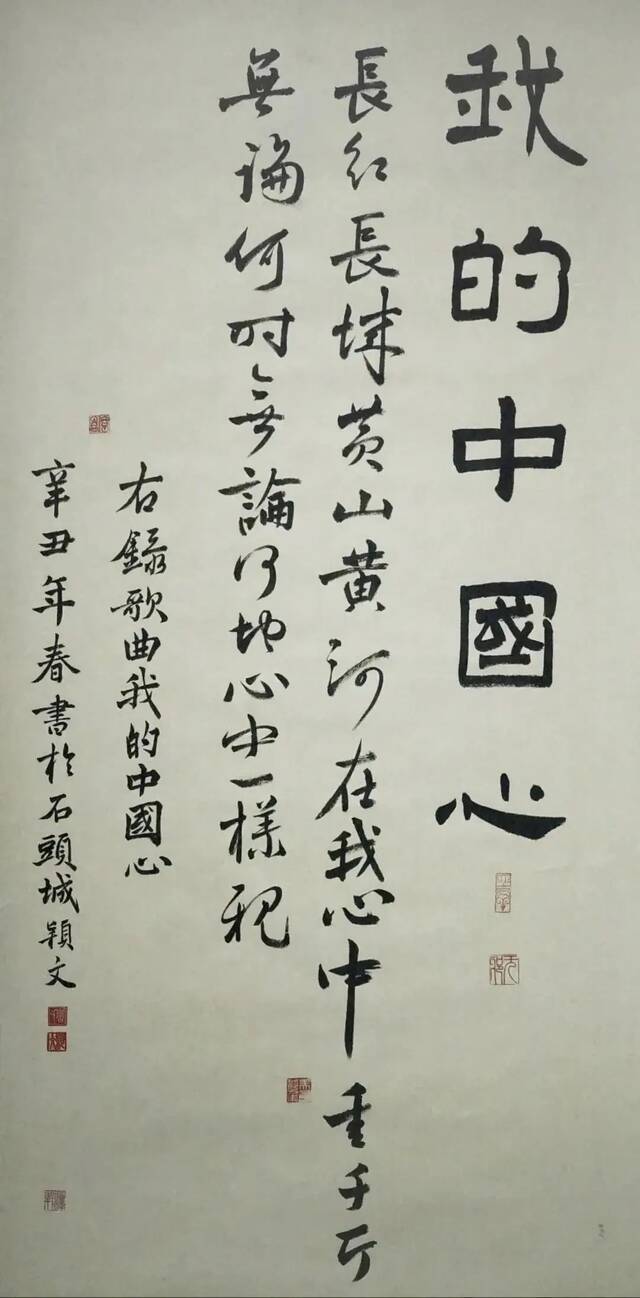 我的中國心
長江長城黄山黄河在我心中重千斤
無論何時無論何地心中一樣親
右錄歌曲我的中國心
辛丑年春書於石頭城穎文